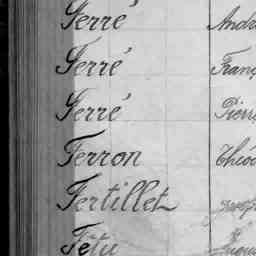 Ferré Andr
Ferré Franç
Ferré Pierr
Ferron Théo
Fertillet Josep
Fétu Augu